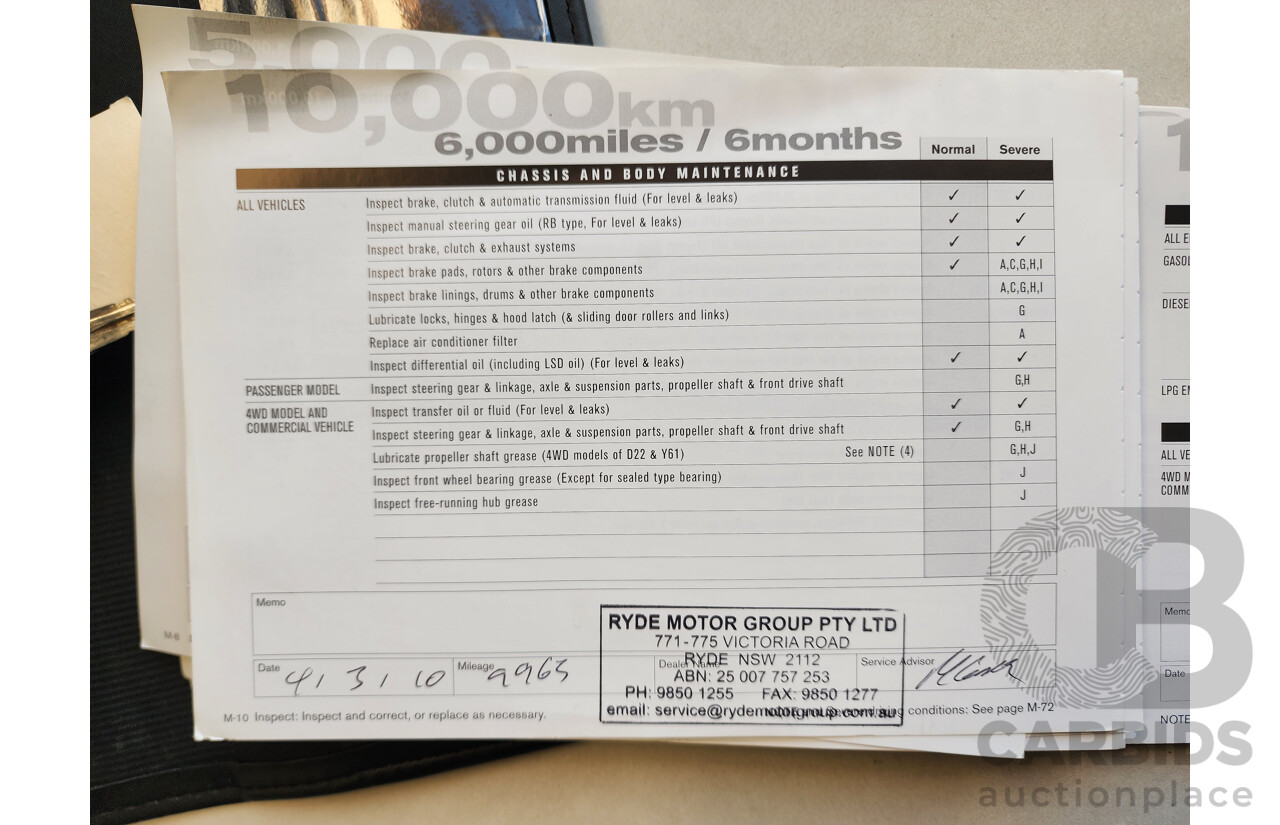 5,000
10,000km
6,000miles / 6months
Normal Severe
CHASSIS AND BODY MAINTENANCE
ALL VEHICLES Inspect brake, clutch & automatic transmission fluid (For level & leaks) ✓ ✓
Inspect manual steering gear oil (RB type, For level & leaks) ✓ ✓
Inspect brake, clutch & exhaust systems ✓ ✓
Inspect brake pads, rotors & other brake components ✓ A,C,G,H,I
Inspect brake linings, drums & other brake components A,C,G,H,I
Lubricate locks, hinges & hood latch (& sliding door rollers and links) G
Replace air conditioner filter A
Inspect differential oil (including LSD oil) (For level & leaks) ✓ ✓
PASSENGER MODEL Inspect steering gear & linkage, axle & suspension parts, propeller shaft & front drive shaft G,H
4WD MODEL AND Inspect transfer oil or fluid (For level & leaks) ✓ ✓
COMMERCIAL VEHICLE Inspect steering gear & linkage, axle & suspension parts, propeller shaft & front drive shaft ✓ G,H
Lubricate propeller shaft grease (4WD models of D22 & Y61) See NOTE (4) G,H,J
Inspect front wheel bearing grease (Except for sealed type bearing) J
Inspect free-running hub grease J
Memo
RYDE MOTOR GROUP PTY LTD
771-775 VICTORIA ROAD
RYDE NSW 2112
ABN: 25 007 757 253
PH: 9850 1255 FAX: 9850 1277
email: service@rydemotorgroup.com.au
Date 4/3/10 Mileage 9963 Dealer Name Service Advisor
M-10 Inspect: Inspect and correct, or replace as necessary. conditions: See page M-72
M-8
ALL E
GASOL
DIESE
LPG EN
ALL VE
4WD M
COMM
Memo
Date
NOTE
CARBIDS
auctionplace